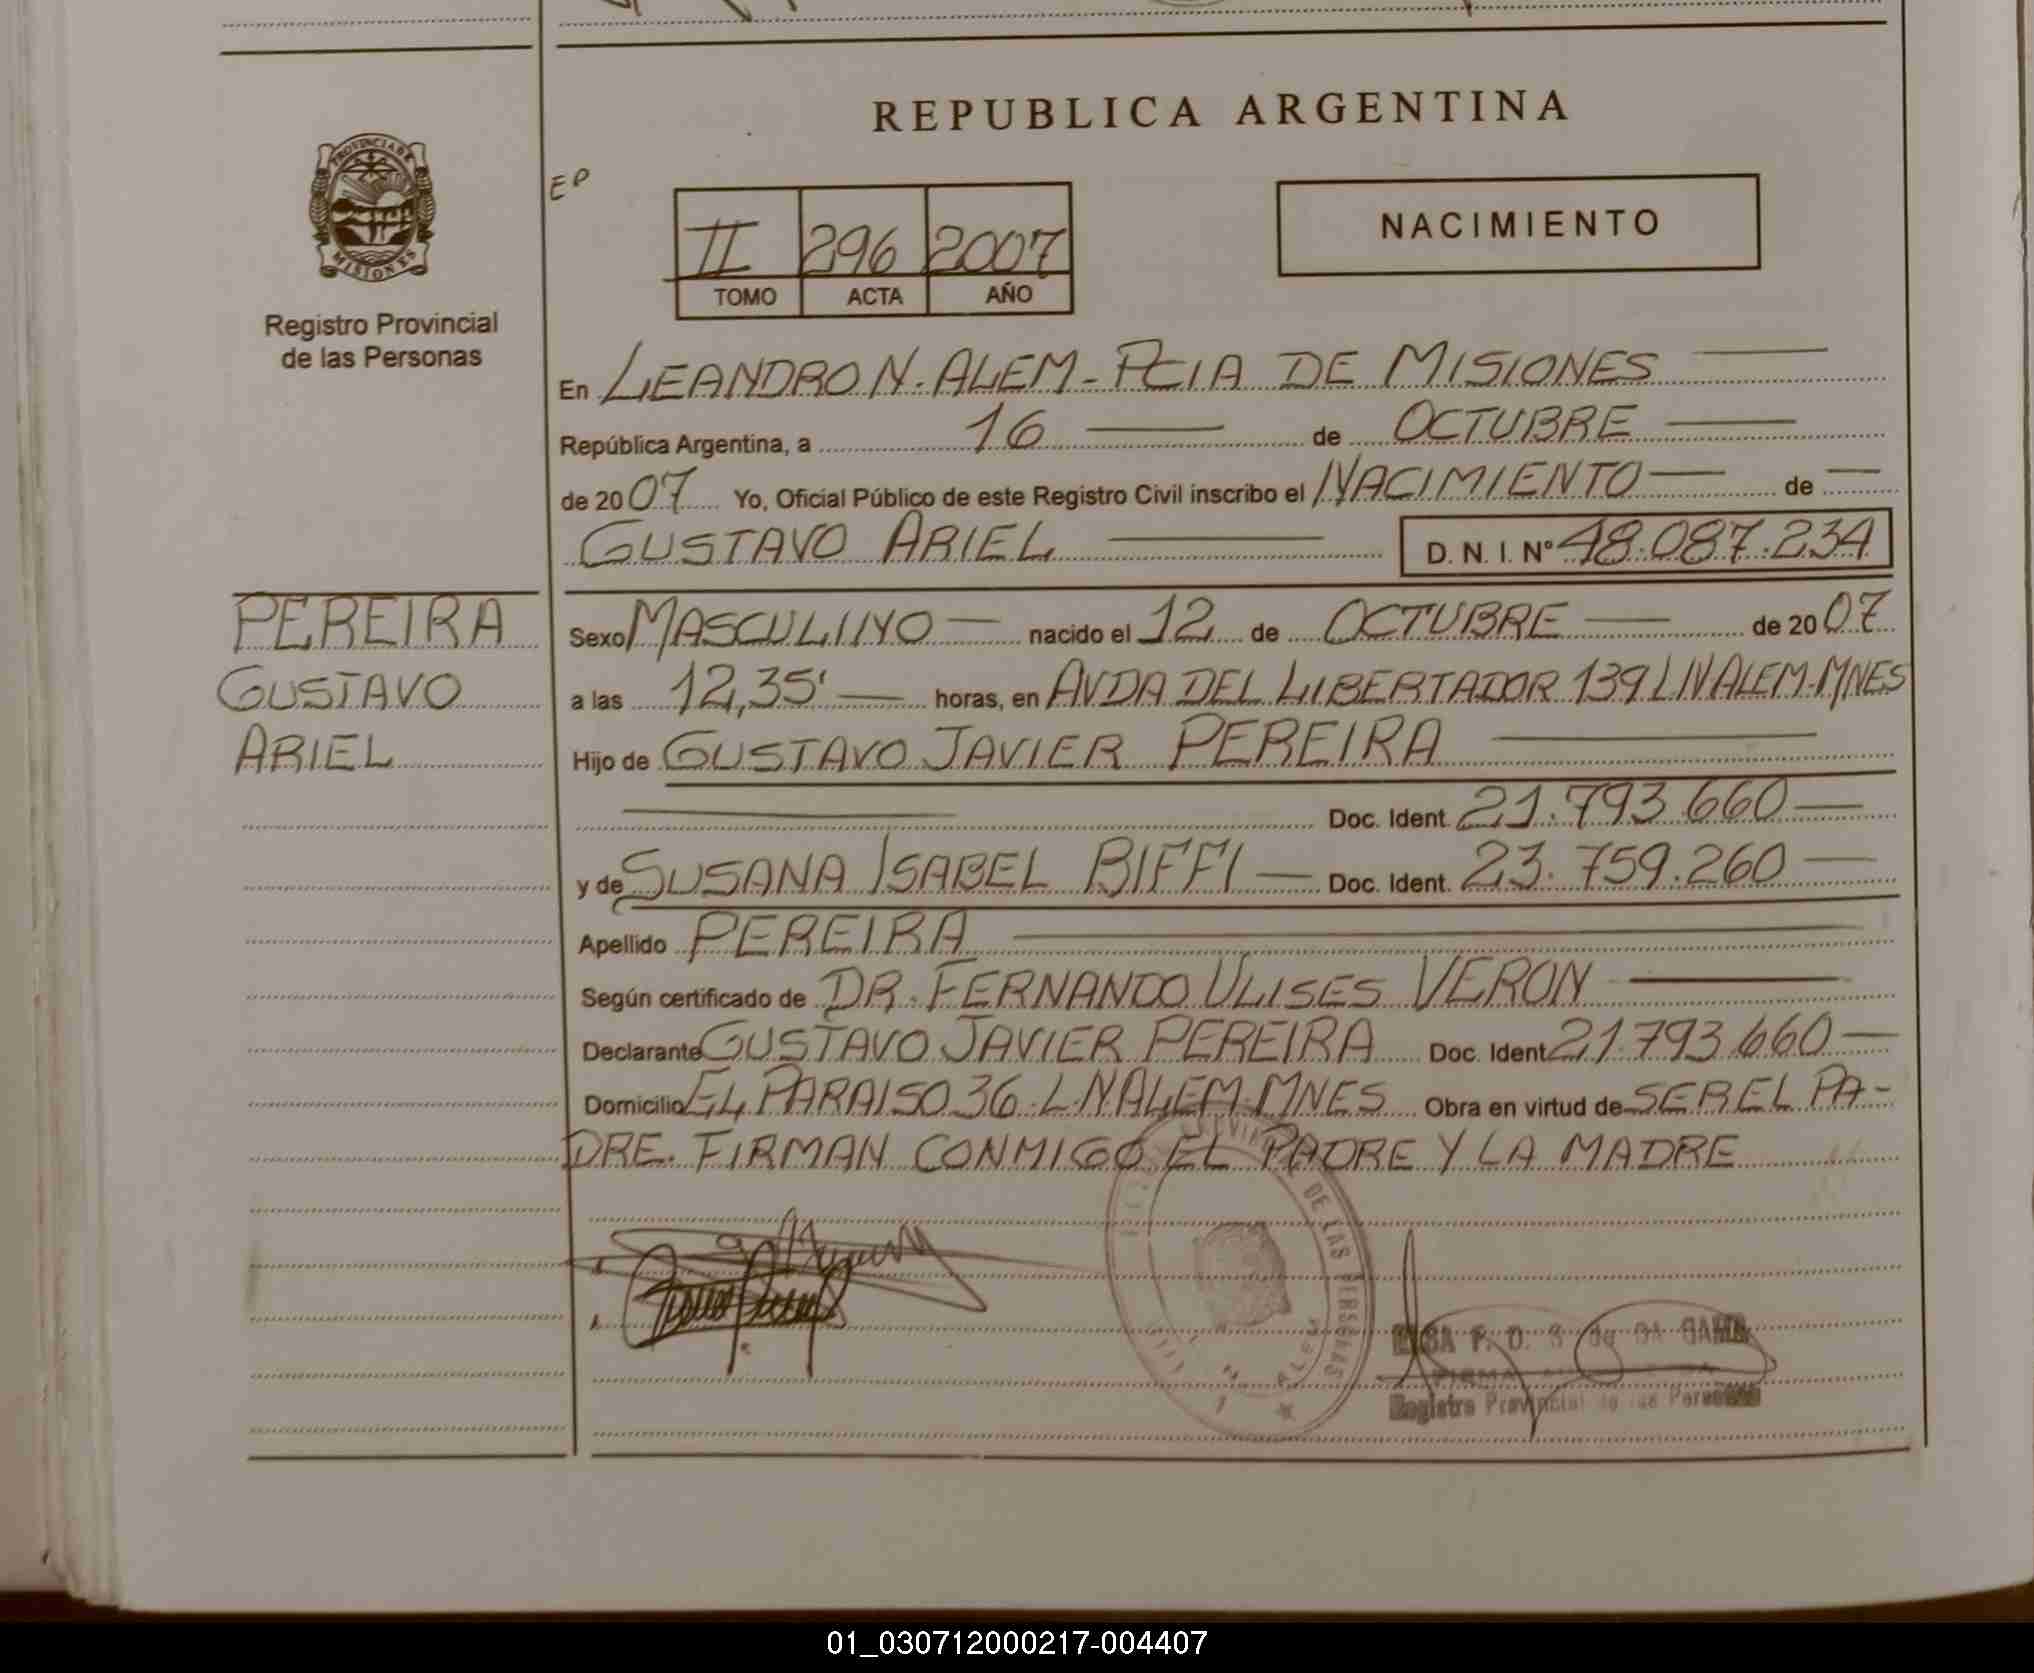 REPUBLICA ARGENTINA
PROVINCIA DE
MISIONES
Registro Provincial
de las Personas
EP
II 296 2007
TOMO ACTA AÑO
NACIMIENTO
En LEANDRO N. ALEM - PCIA DE MISIONES
República Argentina, a 16 de OCTUBRE
de 2007 Yo, Oficial Público de este Registro Civil inscribo el NACIMIENTO de
GUSTAVO ARIEL D. N. I. Nº 48.087.234
PEREIRA
GUSTAVO
ARIEL
Sexo MASCULINO nacido el 12 de OCTUBRE de 2007
a las 12,35' horas, en AVDA DEL LIBERTADOR 139 L N ALEM-MNES
Hijo de GUSTAVO JAVIER PEREIRA
Doc. Ident. 21.793.660
y de SUSANA ISABEL BIFFI Doc. Ident. 23.759.260
Apellido PEREIRA
Según certificado de DR. FERNANDO ULISES VERON
Declarante GUSTAVO JAVIER PEREIRA Doc. Ident 21.793.660
Domicilio EL PARAISO 36 L.N.ALEM-MNES Obra en virtud de SER EL PA-
DRE. FIRMAN CONMIGO EL PADRE Y LA MADRE
DE LAS PERSONAS
Registro Provincial de las Personas
01_030712000217-004407